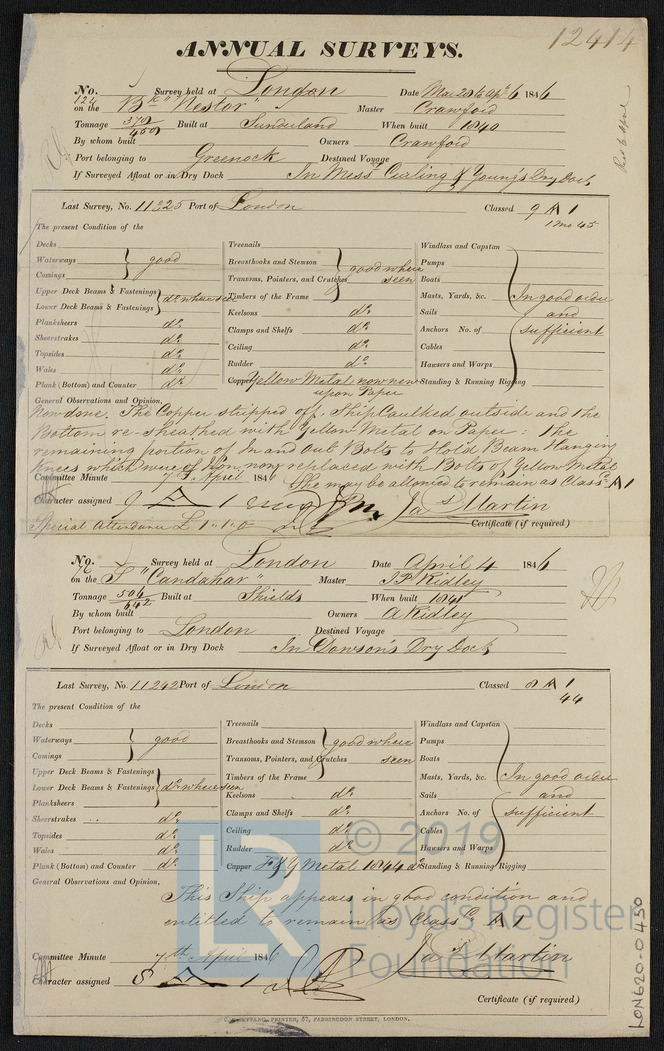 12414
ANNUAL SURVEYS.
No. 124 Survey held at London Date Mar 20 to Apl 6 1846
on the Bk "Nestor" Master Crawford
Tonnage 370/450 Built at Sunderland When built 1840
By whom built Owners Crawford
Port belonging to Greenock Destined Voyage
If Surveyed Afloat or in Dry Dock In Mess Curling & Young's Dry Dock
Last Survey, No. 11325 Port of London Classed 9 A 1
1 mo 45
The present Condition of the
Decks
Waterways } good
Comings
Upper Deck Beams & Fastenings
Lower Deck Beams & Fastenings } do where seen
Planksheers do
Sheerstrakes do
Topsides do
Wales do
Plank (Bottom) and Counter do
Treenails
Breasthooks and Stemson } good where
Transoms, Pointers, and Crutches seen
Timbers of the Frame
Keelsons do
Clamps and Shelfs do
Ceiling do
Rudder do
Copper Yellow Metal now new
upon Paper
Windlass and Capstan
Pumps
Boats
Masts, Yards, &c. In good order
Sails and
Anchors No. of sufficient
Cables
Hawsers and Warps
Standing & Running Rigging
General Observations and Opinion,
Now done. The Copper stripped off. Ship Caulked outside and the
Bottom re-sheathed with Yellow Metal on Paper: the
remaining portion of In and Out Bolts to Hold Beam Hanging
Knees which were of Iron, now replaced with Bolts of Yellow Metal
Committee Minute 7th April 1846 She may be allowed to remain as Classd A 1
Character assigned 9 A 1 Jas Martin
Special Attendance £1.1.0 Certificate (if required)
No. 76 Survey held at London Date April 4 1846
on the S "Candahar" Master J P Ridley
Tonnage 506/642 Built at Shields When built 1841
By whom built Owners A Ridley
Port belonging to London Destined Voyage
If Surveyed Afloat or in Dry Dock In Dowson's Dry Dock
Last Survey, No. 11242 Port of London Classed 8 A 1
44
The present Condition of the
Decks
Waterways } good
Comings
Upper Deck Beams & Fastenings
Lower Deck Beams & Fastenings } do where seen
Planksheers
Sheerstrakes do
Topsides do
Wales do
Plank (Bottom) and Counter do
Treenails
Breasthooks and Stemson } good where
Transoms, Pointers, and Crutches seen
Timbers of the Frame
Keelsons do
Clamps and Shelfs do
Ceiling do
Rudder do
Copper F & Y Metal 1844 do
Windlass and Capstan
Pumps
Boats
Masts, Yards, &c. In good order
Sails and
Anchors No. of sufficient
Cables
Hawsers and Warps
Standing & Running Rigging
General Observations and Opinion,
This Ship appears in good condition and
entitled to remain as Classd A 1
Committee Minute 7th April 1846 Jas Martin
Character assigned 8 A 1
Certificate (if required)
PRINTER, 57, FARRINGDON STREET, LONDON.
LR © 2019
Lloyd's Register
Foundation
LON620-0450